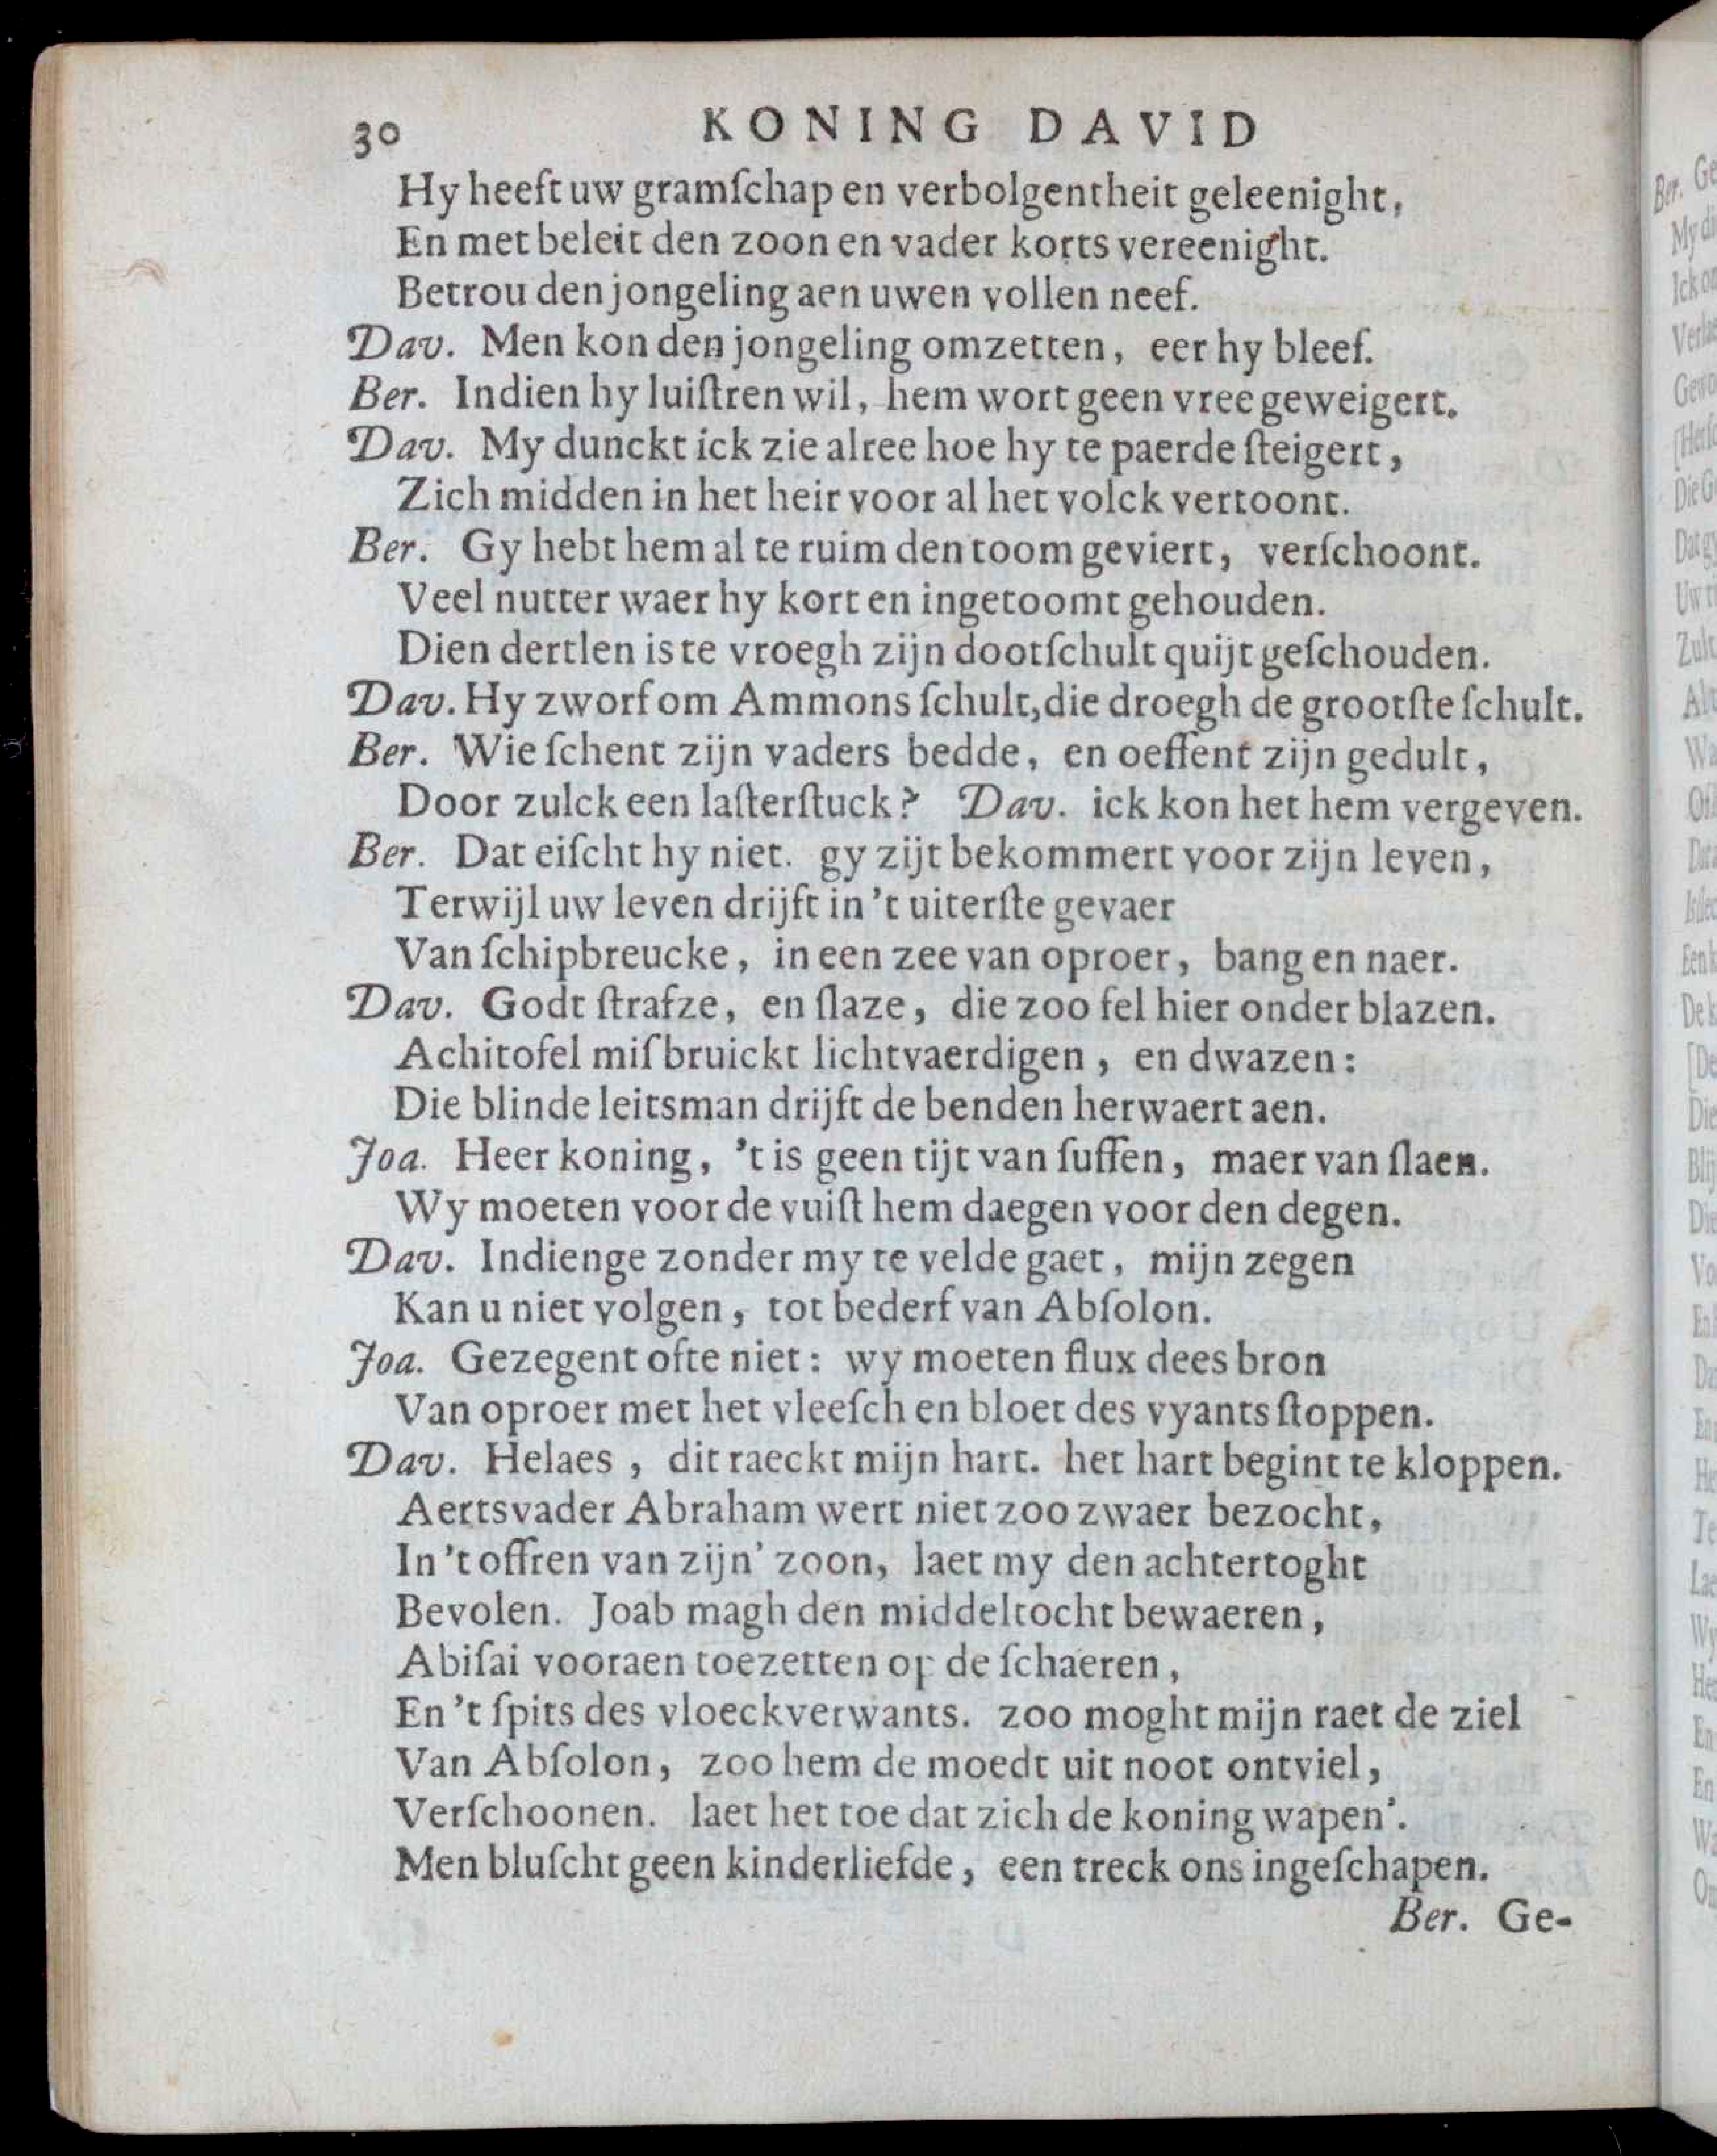 30 KONING DAVID
Hy heeft uw gramſchap en verbolgentheit geleenight,
En met beleit den zoon en vader korts vereenight.
Betrou den jongeling aen uwen vollen neef.
Dav. Men kon den jongeling omzetten, eer hy bleef.
Ber. Indien hy luiſtren wil, hem wort geen vree geweigert.
Dav. My dunckt ick zie alree hoe hy te paerde ſteigert,
Zich midden in het heir voor al het volck vertoont.
Ber. Gy hebt hem al te ruim den toom geviert, verſchoont.
Veel nutter waer hy kort en ingetoomt gehouden.
Dien dertlen is te vroegh zijn dootſchult quijt geſchouden.
Dav. Hy zworf om Ammons ſchult, die droegh de grootſte ſchult.
Ber. Wie ſchent zijn vaders bedde, en oeffent zijn gedult,
Door zulck een laſterſtuck? Dav. ick kon het hem vergeven.
Ber. Dat eiſcht hy niet. gy zijt bekommert voor zijn leven,
Terwijl uw leven drijft in 't uiterſte gevaer
Van ſchipbreucke, in een zee van oproer, bang en naer.
Dav. Godt ſtrafze, en ſlaze, die zoo fel hier onder blazen.
Achitofel miſbruickt lichtvaerdigen, en dwazen:
Die blinde leitsman drijft de benden herwaert aen.
Joa. Heer koning, 't is geen tijt van ſuffen, maer van ſlaen.
Wy moeten voor de vuiſt hem daegen voor den degen.
Dav. Indienge zonder my te velde gaet, mijn zegen
Kan u niet volgen, tot bederf van Abſolon.
Joa. Gezegent ofte niet: wy moeten flux dees bron
Van oproer met het vleeſch en bloet des vyants ſtoppen.
Dav. Helaes, dit raeckt mijn hart. het hart begint te kloppen.
Aertsvader Abraham wert niet zoo zwaer bezocht,
In 't offren van zijn' zoon, laet my den achtertoght
Bevolen. Joab magh den middeltocht bewaeren,
Abiſai vooraen toezetten op de ſchaeren,
En 't ſpits des vloeckverwants. zoo moght mijn raet de ziel
Van Abſolon, zoo hem de moedt uit noot ontviel,
Verſchoonen. laet het toe dat zich de koning wapen'.
Men bluſcht geen kinderliefde, een treck ons ingeſchapen.
Ber. Ge-